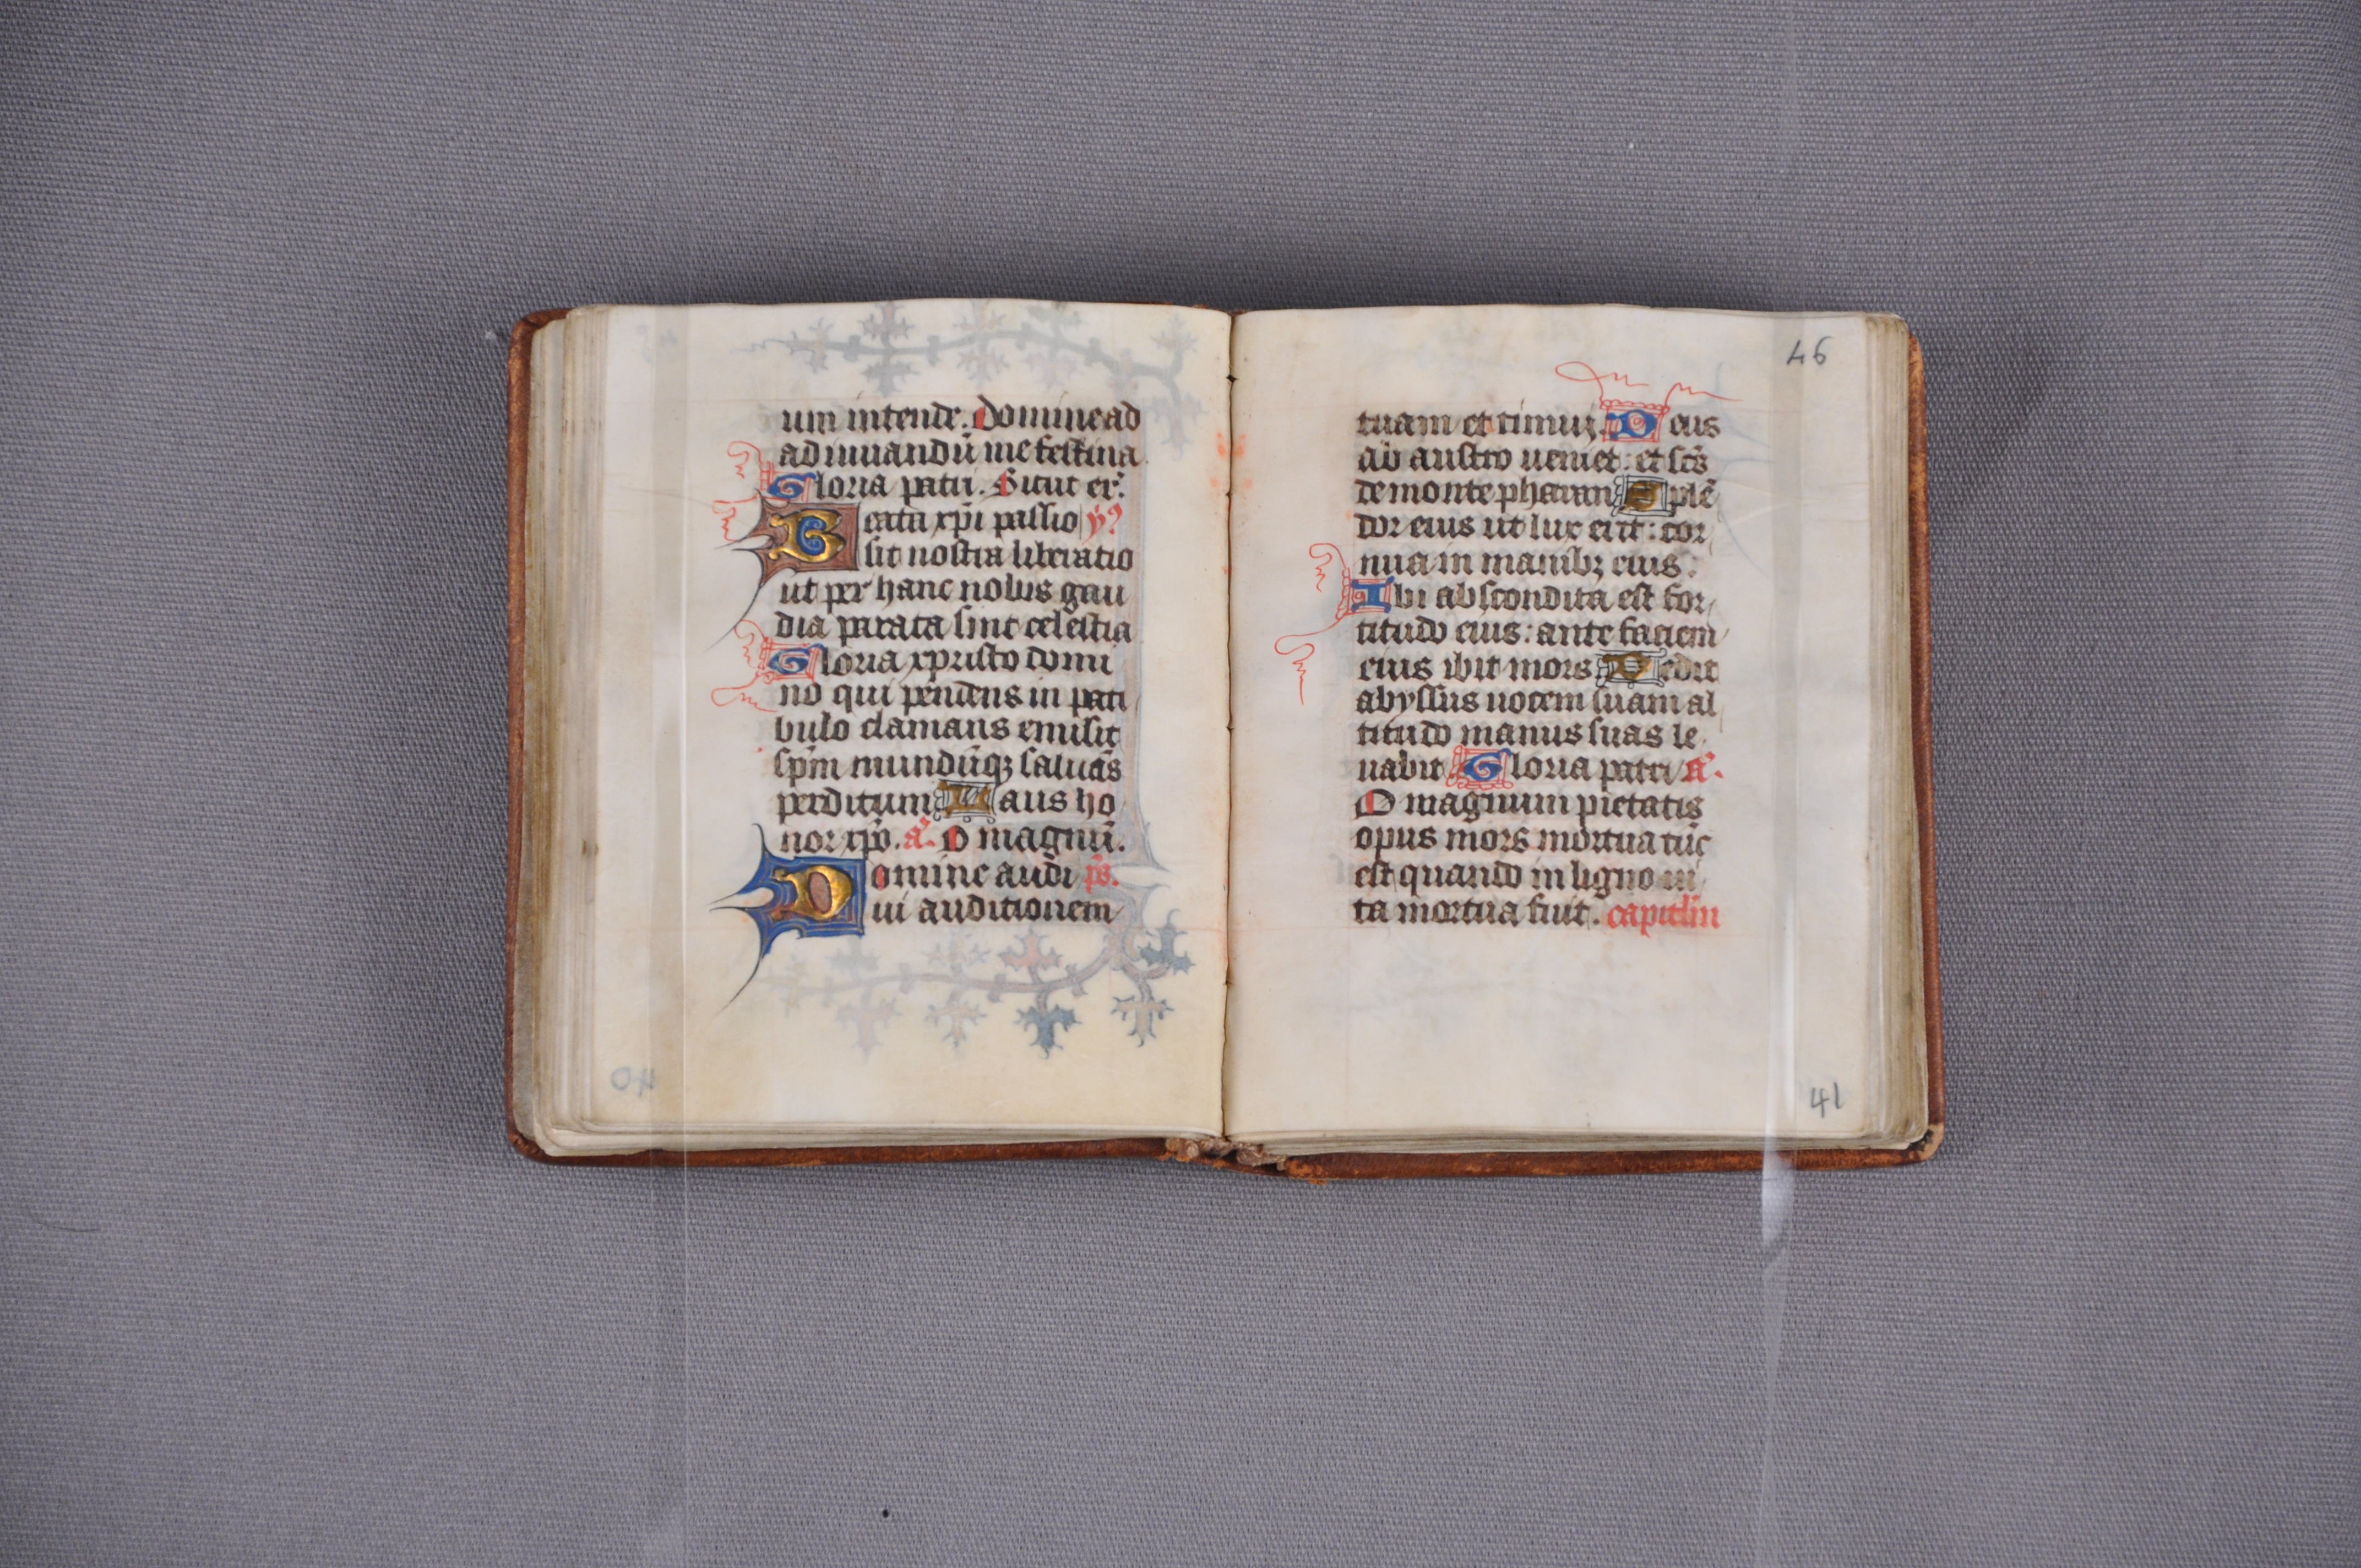 um intende. Domine ad
adiuuandū me festina
Gloria patri. Sicut er̄.
Beata xp̄i passio ẏ̄9
sit nostra liberatio
ut per hanc nobis gau
dia parata sint celestia
Gloria xpristo domi
no qui pendens in pati
bulo clamans emisit
sp̄m mundūqꝫ saluās
perditum Laus ho
nor xp̄o. a. O magnū.
Domine audi ps̄.
ui auditionem
40
46
tuam et timui. Deus
ab austro ueniet: et sc̄s
de monte pharan Splē
dor eius ut lux erit: cor
nua in manibꝫ eius:
Ibi abscondita est for
titudo eius: ante faciem
eius ibit mors Dedit
abyssus uocem suam al
titudo manus suas le
uabit Gloria patri a.
O magnum pietatis
opus mors mortua tūc
est quando in ligno ui
ta mortua fuit. capitl̄m
41